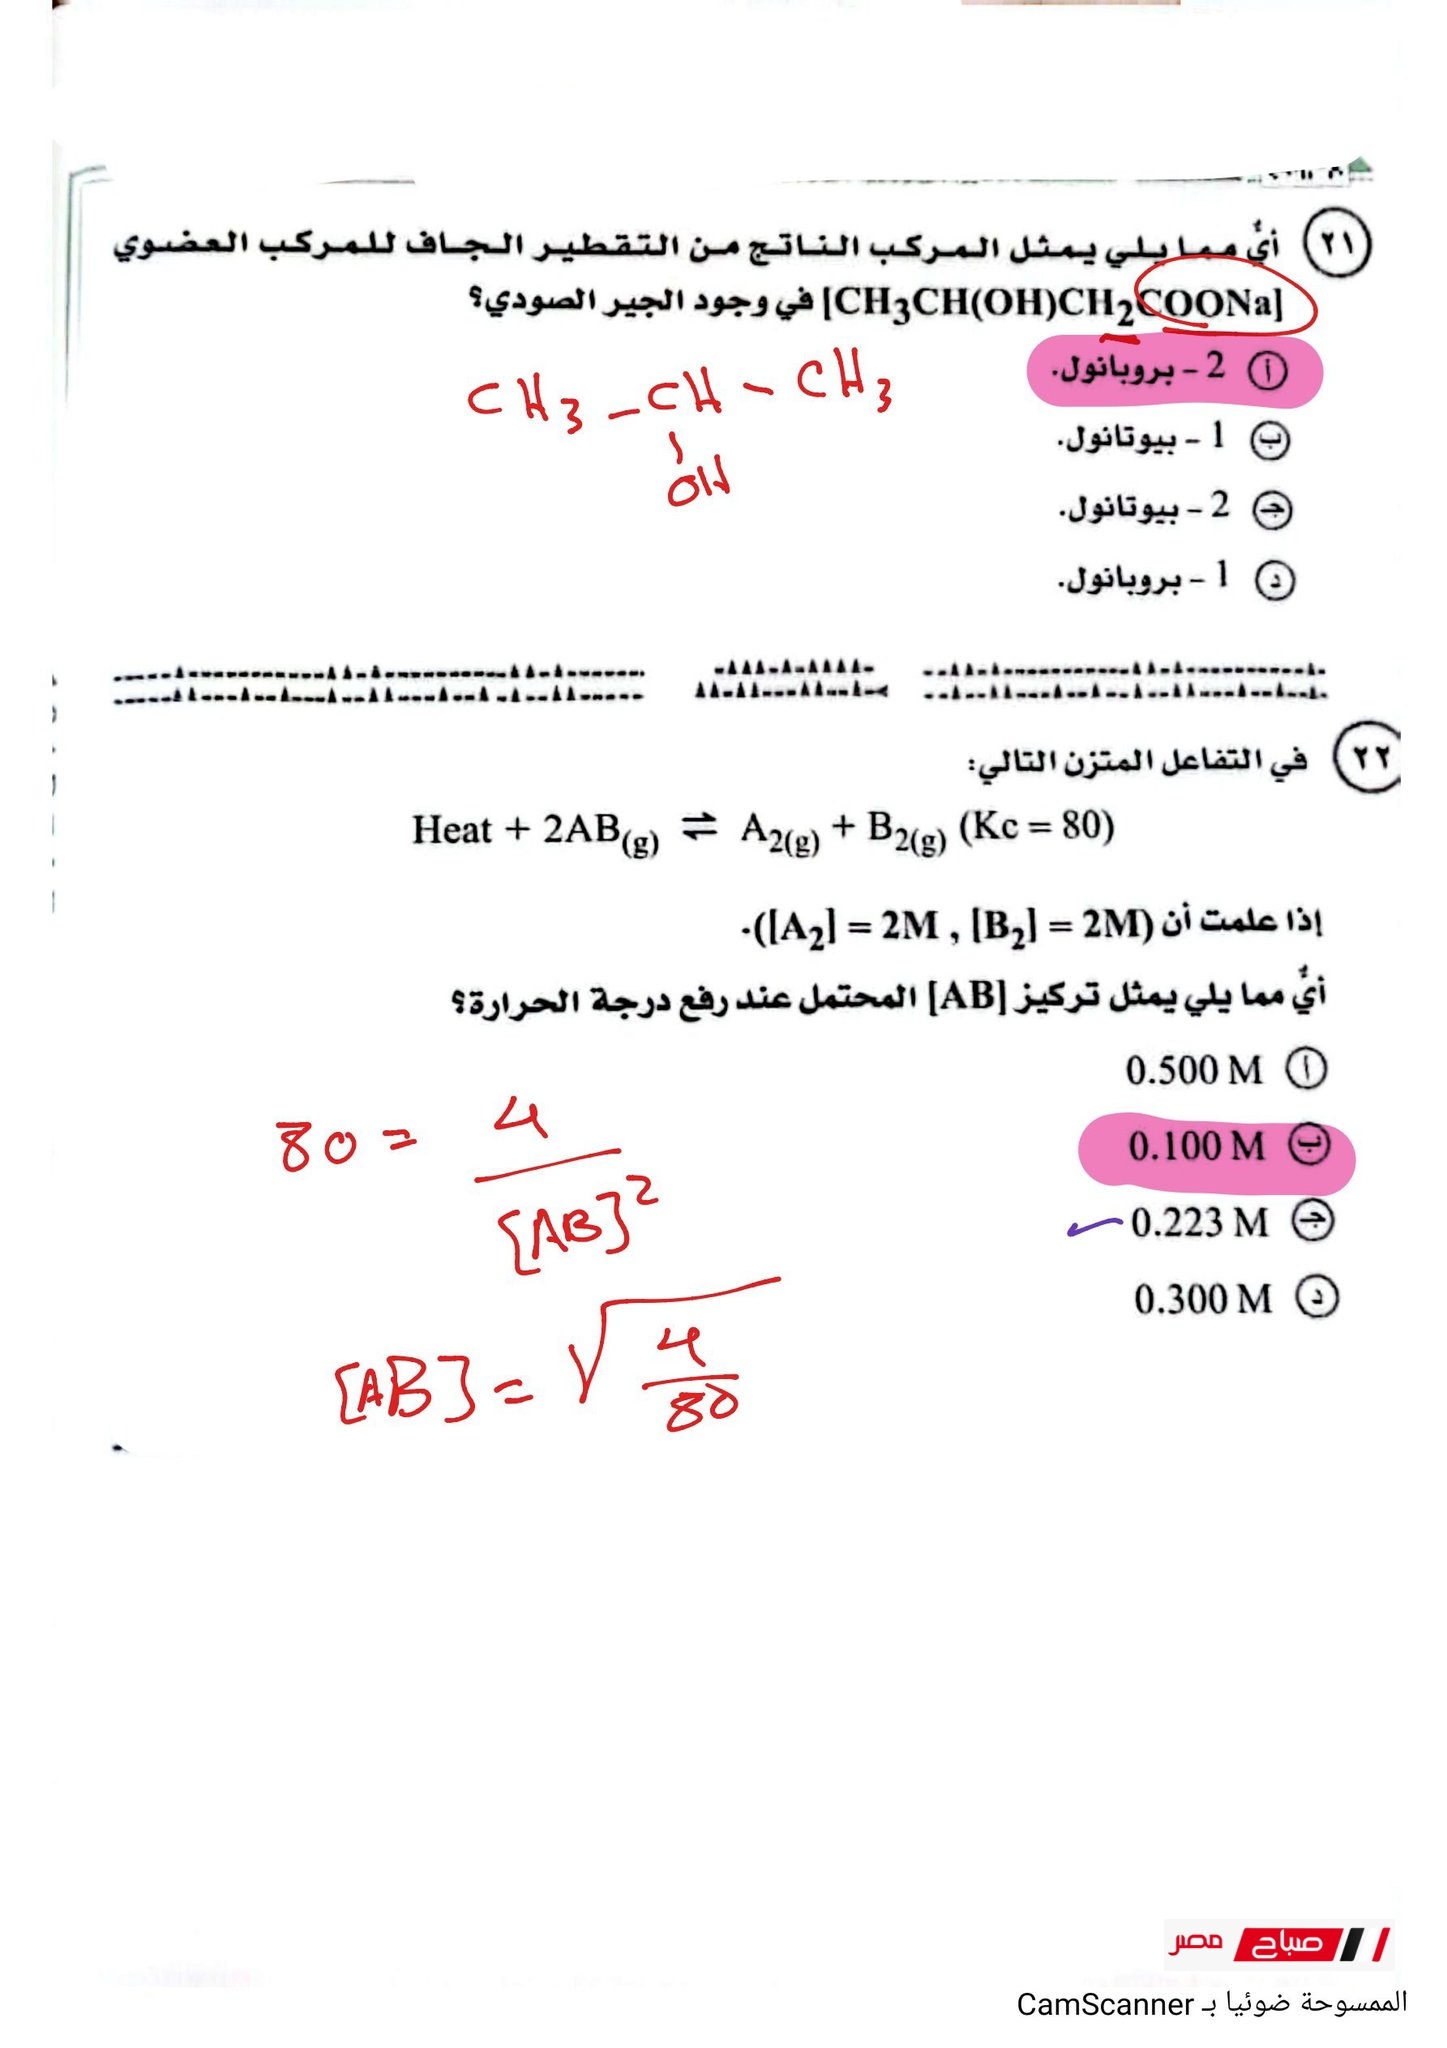 ٢١ أيٌّ مما يلي يمثل المركب الناتج من التقطير الجاف للمركب العضوي
[CH3CH(OH)CH2COONa] في وجود الجير الصودي؟
أ 2 - بروبانول.
ب 1 - بيوتانول.
ج 2 - بيوتانول.
د 1 - بروبانول.
CH3 - CH - CH3
OH
٢٢ في التفاعل المتزن التالي:
Heat + 2AB(g) ⇌ A2(g) + B2(g) (Kc = 80)
إذا علمت أن ([A2] = 2M , [B2] = 2M).
أيٌّ مما يلي يمثل تركيز [AB] المحتمل عند رفع درجة الحرارة؟
أ 0.500 M
ب 0.100 M
ج 0.223 M
د 0.300 M
80 = 4 / [AB]2
[AB] = √4/80
صباح مصر
الممسوحة ضوئيا بـ CamScanner